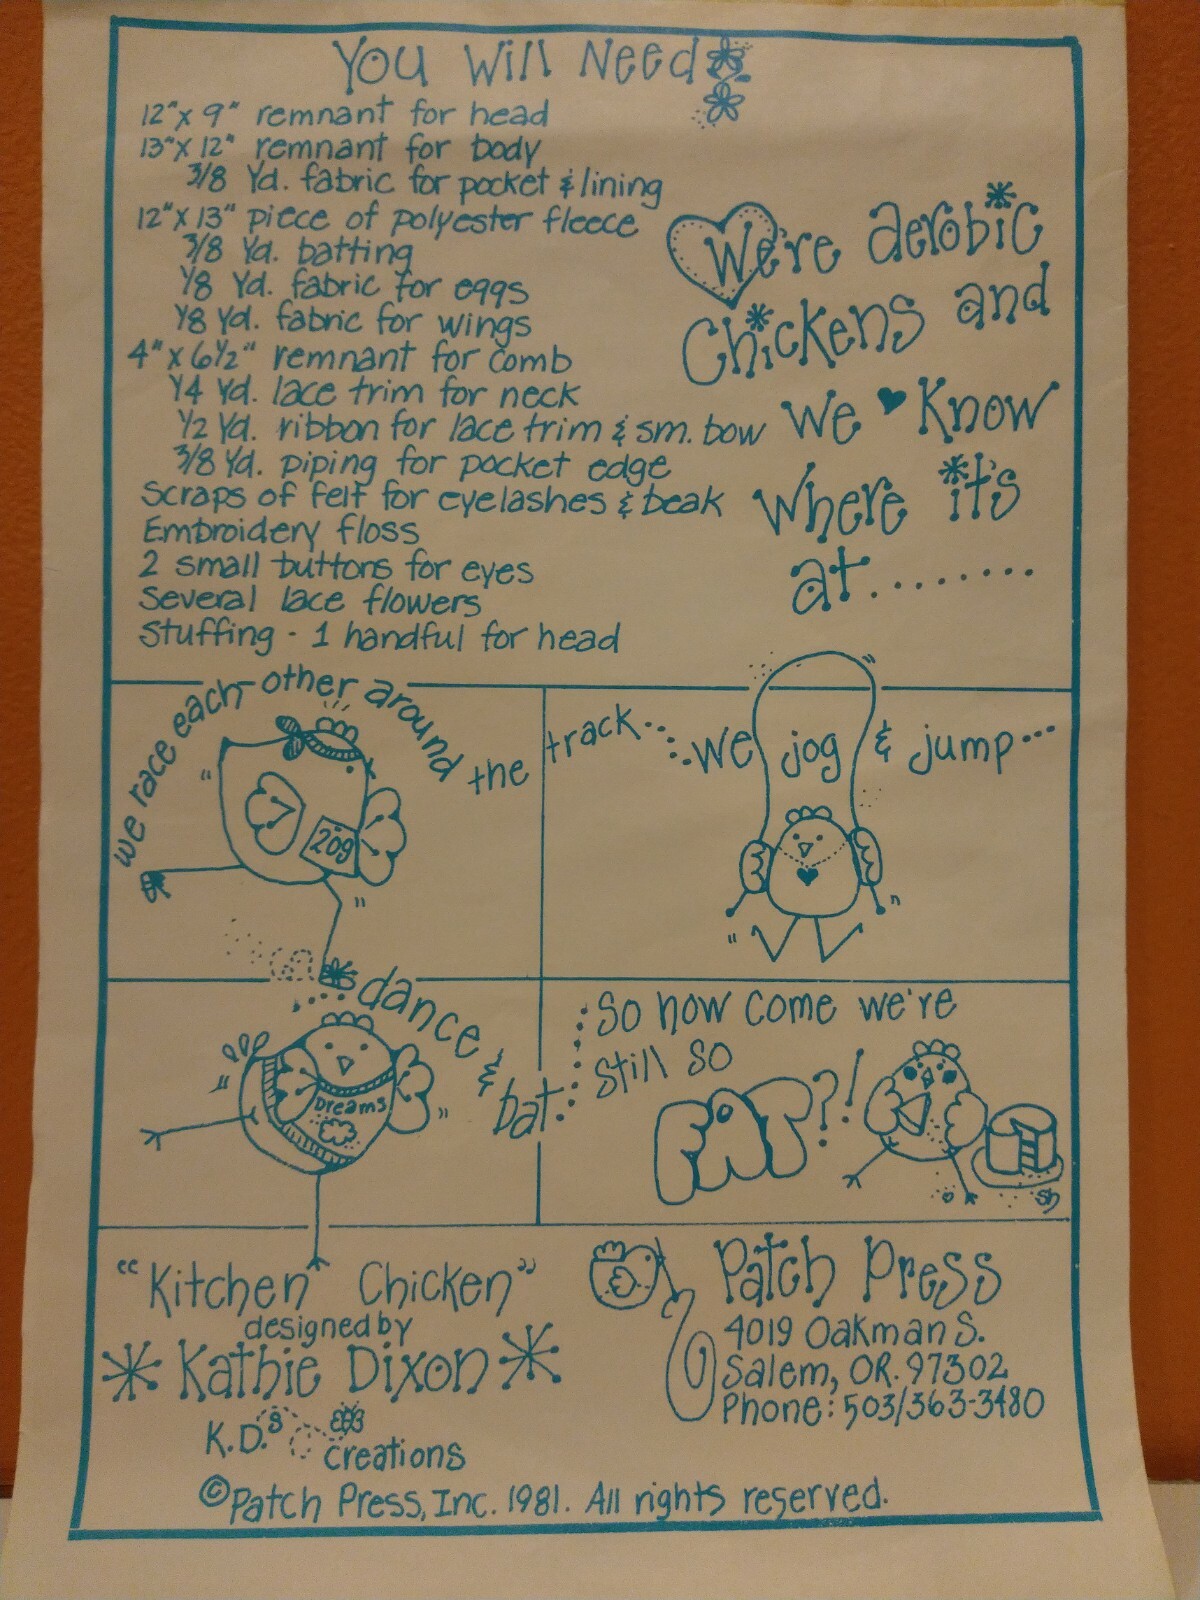 You Will Need
12" x 9" remnant for head
13" x 12" remnant for body
3/8 Yd. fabric for pocket & lining
12" x 13" piece of polyester fleece
3/8 Yd. batting
1/8 Yd. fabric for eggs
1/8 Yd. fabric for wings
4" x 6 1/2" remnant for comb
1/4 Yd. lace trim for neck
1/2 Yd. ribbon for lace trim & sm. bow
3/8 Yd. piping for pocket edge
Scraps of felt for eyelashes & beak
Embroidery floss
2 small buttons for eyes
Several lace flowers
Stuffing - 1 handful for head
We're aerobic
Chickens and
We ♥ Know
Where it's
at........
we race each other around the track.....
209
we jog & jump...
....dance & bat.....
Dreams
So how come we're
still so
FAT?!
sh
"Kitchen Chicken"
designed by
Kathie Dixon
K.D.'s
creations
Patch Press
4019 Oakman S.
Salem, OR. 97302
Phone: 503/363-3480
© Patch Press, Inc. 1981. All rights reserved.